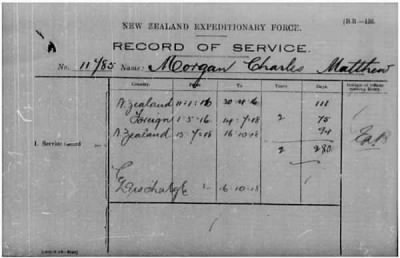 NEW ZEALAND EXPEDITIONARY FORCE.
RECORD OF SERVICE.
No. 11/85 Name: Morgan Charles Matthew
Country. From To Years Days.
N Zealand 11.1.16 30.4.16 111
Foreign 1.5.16 14.7.18 2 75
N Zealand 15.7.18 16.10.18 94
1. Service Record
2 280
Discharge 16.10.18